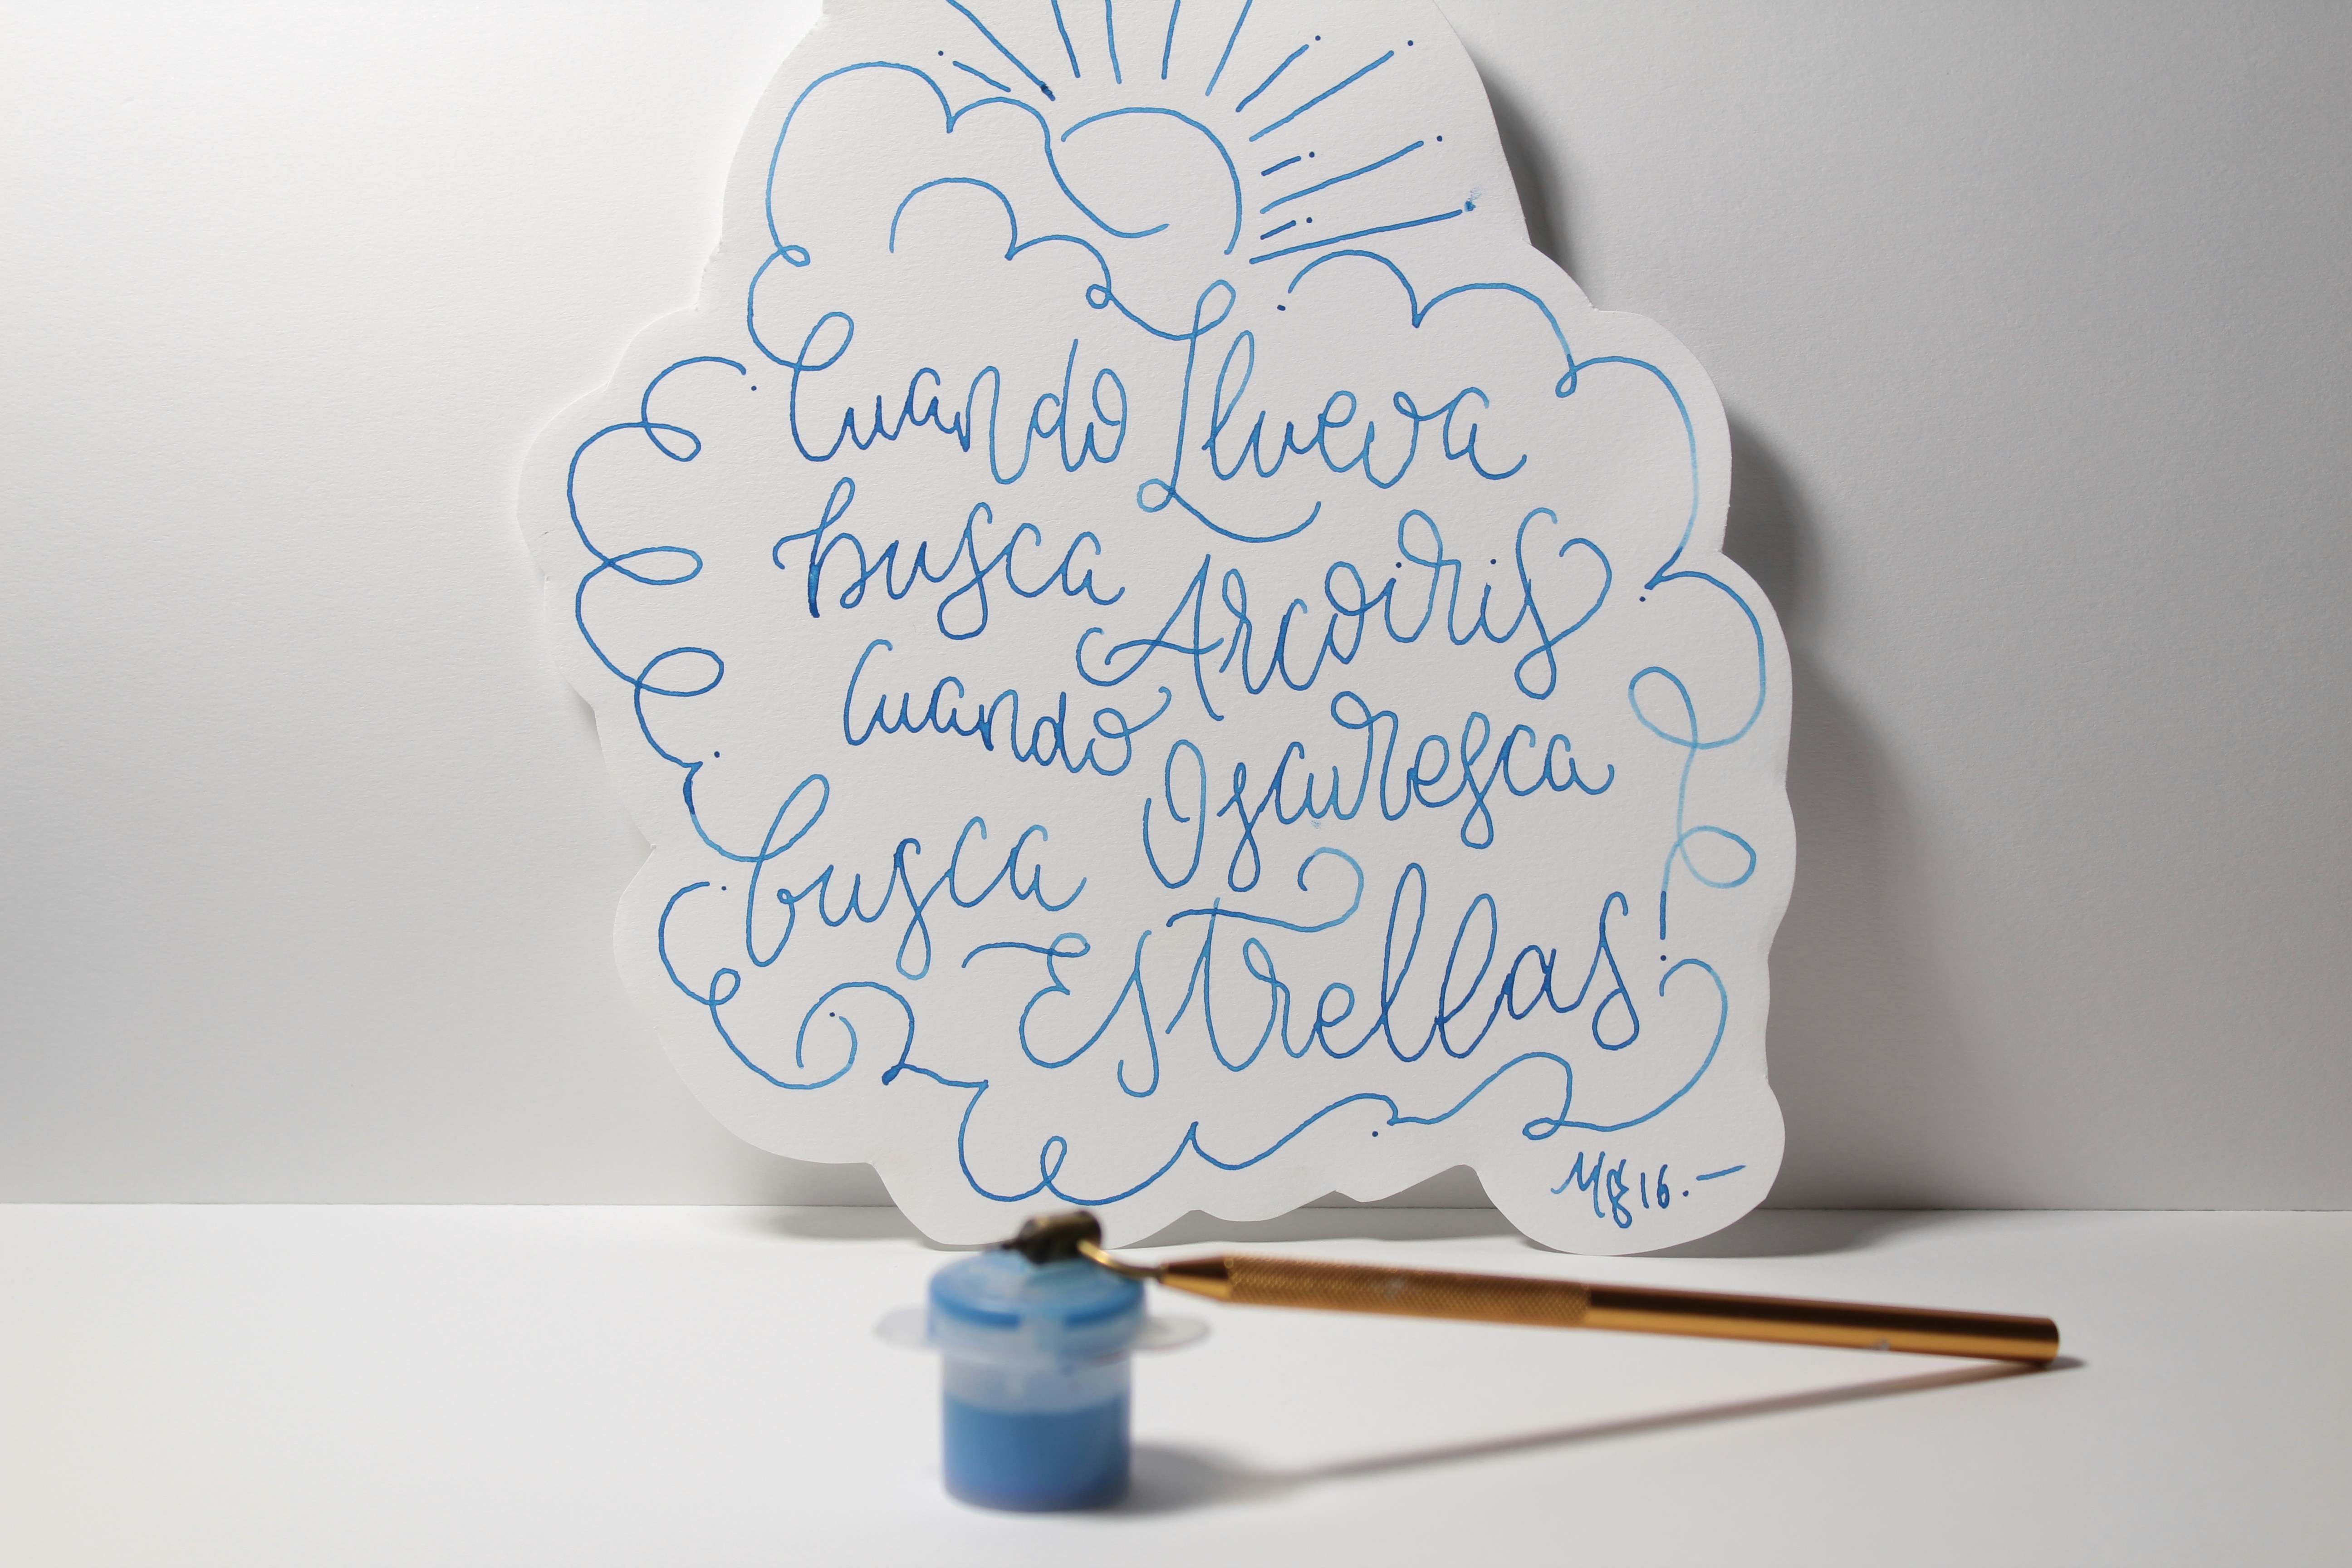 Cuando Llueva
busca Arcoiris
Cuando Oscuresca
busca Estrellas